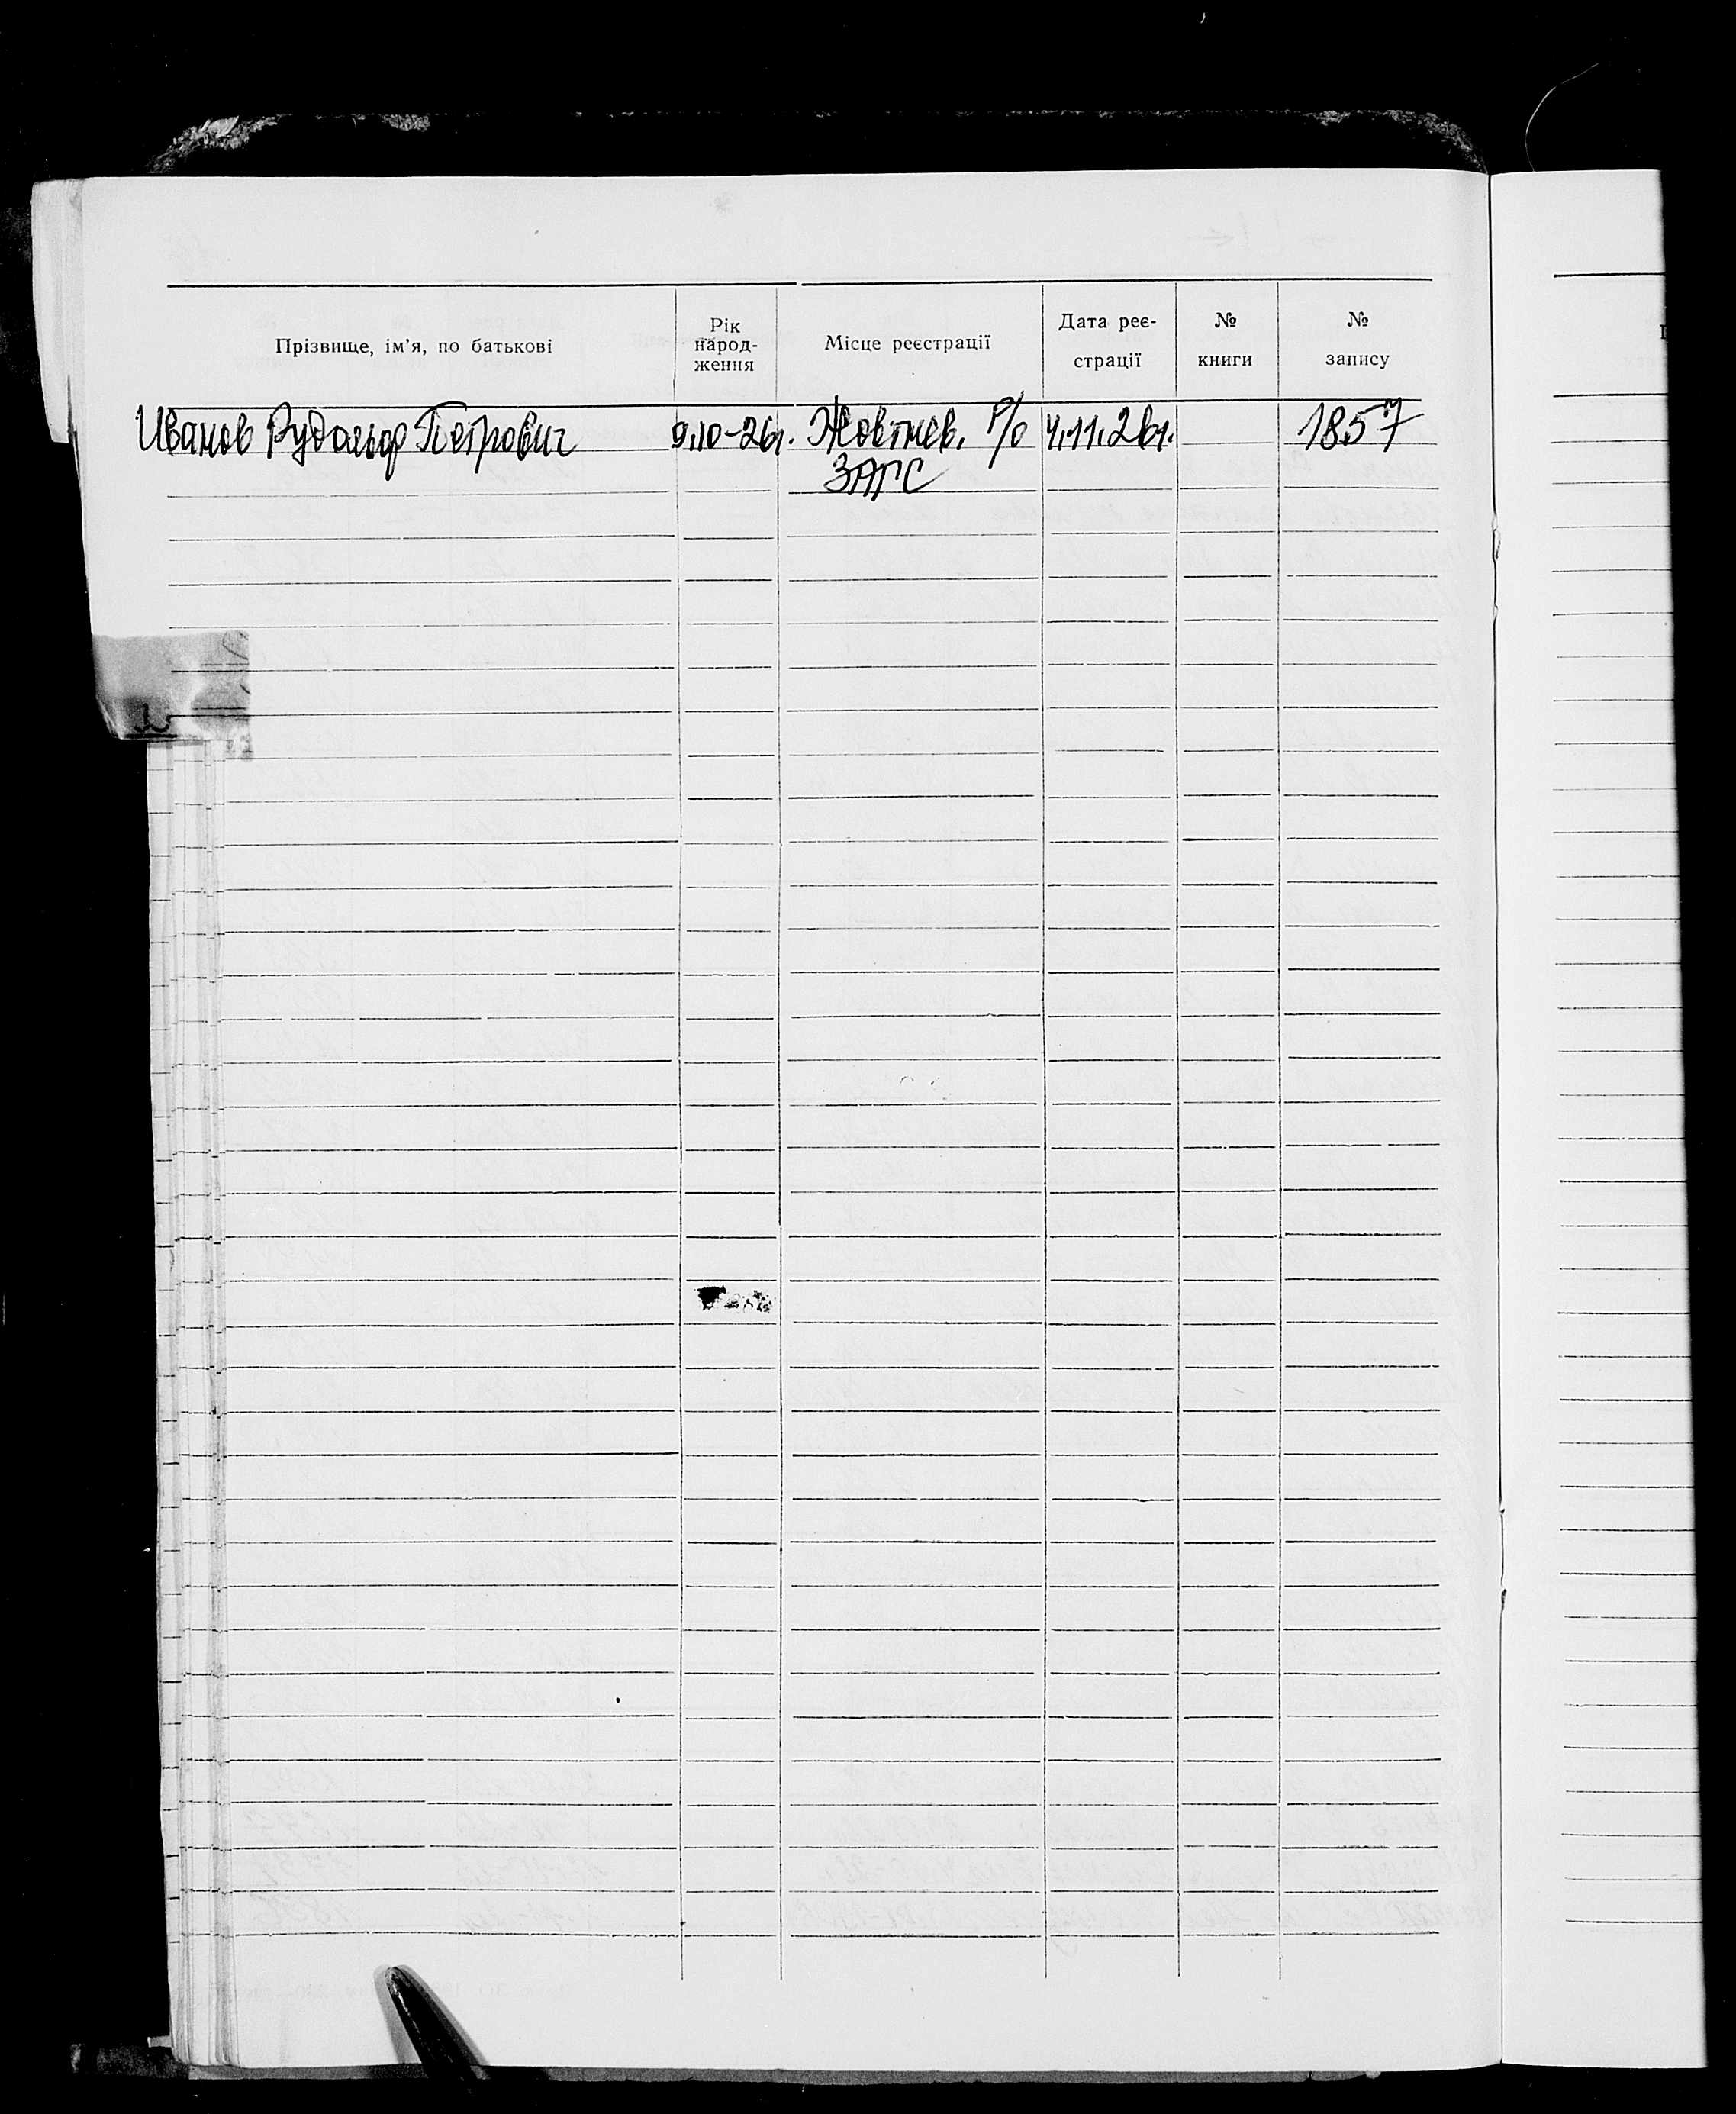 Прізвище, ім’я, по батькові
Рік
народ-
ження
Місце реєстрації
Дата реє-
страції
№
книги
№
запису
Иванов Рудольф Петрович 9.10-26г. Жовтнев. Р/о 4.11.26г. 1857
ЗАГС